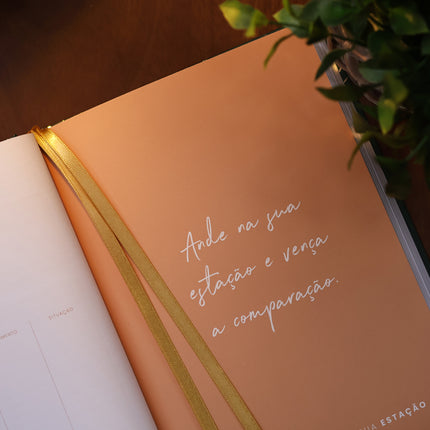 Ande na sua
estação e vença
a comparação.
SITUAÇÃO
UA ESTAÇÃO